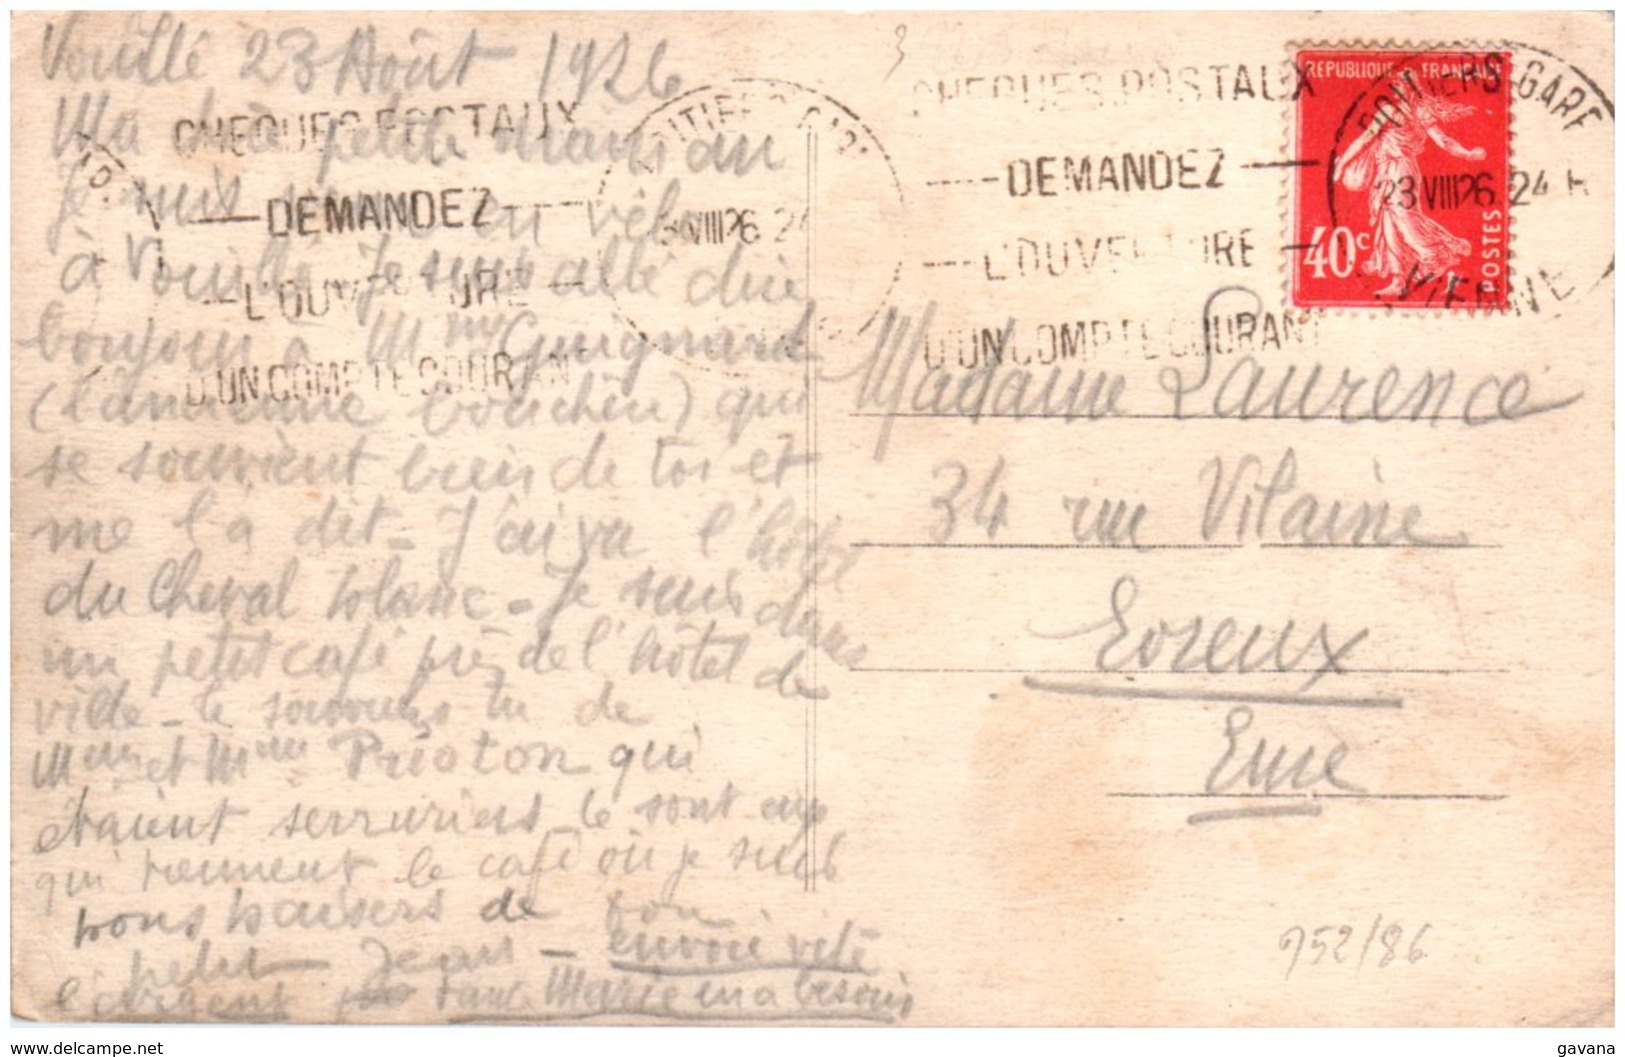 Vouillé 23 Août 1926
Ma chère petite maman
Je suis venu en vélo
à Vouillé Je suis allé dire
bonjour à Mme Guignard
(l'ancienne bouchère) qui
se souvient bien de toi et
me l'a dit - J'ai vu l'hôtel
du Cheval blanc - Je suis dans
un petit café près de l'hôtel de
ville - te souviens tu de
Mr et Mme Prioton qui
étaient serruriers ce sont eux
qui tiennent le café où je suis
bons baisers de ton
petit Jean - envoie vite
l'argent tante Marie en a besoin
CHEQUES POSTAUX
DEMANDEZ
L'OUVERTURE
D'UN COMPTE COURANT
POITIERS GARE
VIII 26 24
CHEQUES POSTAUX
DEMANDEZ
L'OUVERTURE
D'UN COMPTE COURANT
REPUBLIQUE FRANÇAISE
40c
POSTES
POITIERS-GARE
23 VIII 26 24 H
VIENNE
Madame Laurence
34 rue Vilaine
Evreux
Eure
952/86
www.delcampe.net
gavana